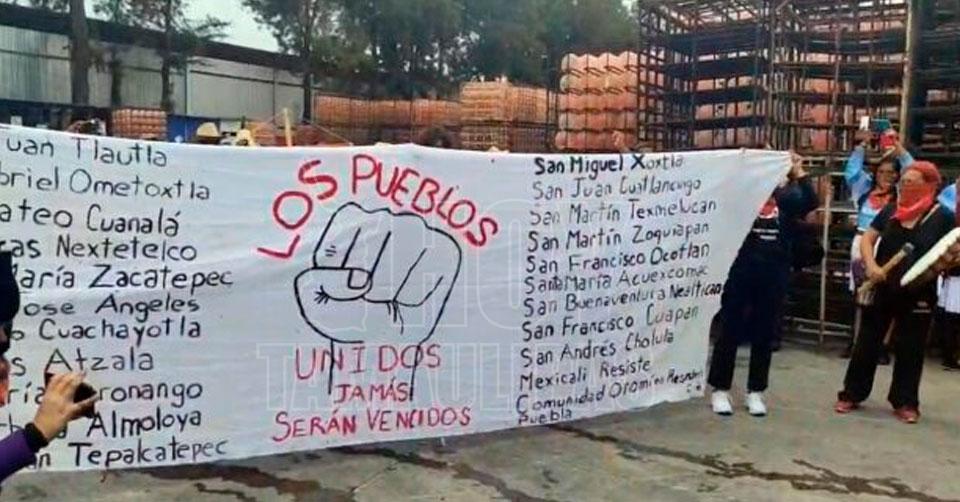 Juan Tlautla
briel Ometoxtla
ateo Cuanalá
cas Nextetelco
María Zacatepec
Jose Angeles
o Cuachayotla
s Atzala
ría oronango
Almoloya
an Tepalcatepec
LOS PUEBLOS
UNIDOS
JAMÁS
SERÁN VENCIDOS
San Miguel Xoxtla
San Juan Cuatlancingo
San Martín Texmelucan
San Martín Zoquiapan
San Francisco Ocotlan
Santa María Acuexcomac
San Buenaventura Nealtican
San Francisco Cuapan
San Andrés Cholula
Mexicali Resiste
Comunidad Oromino
Puebla